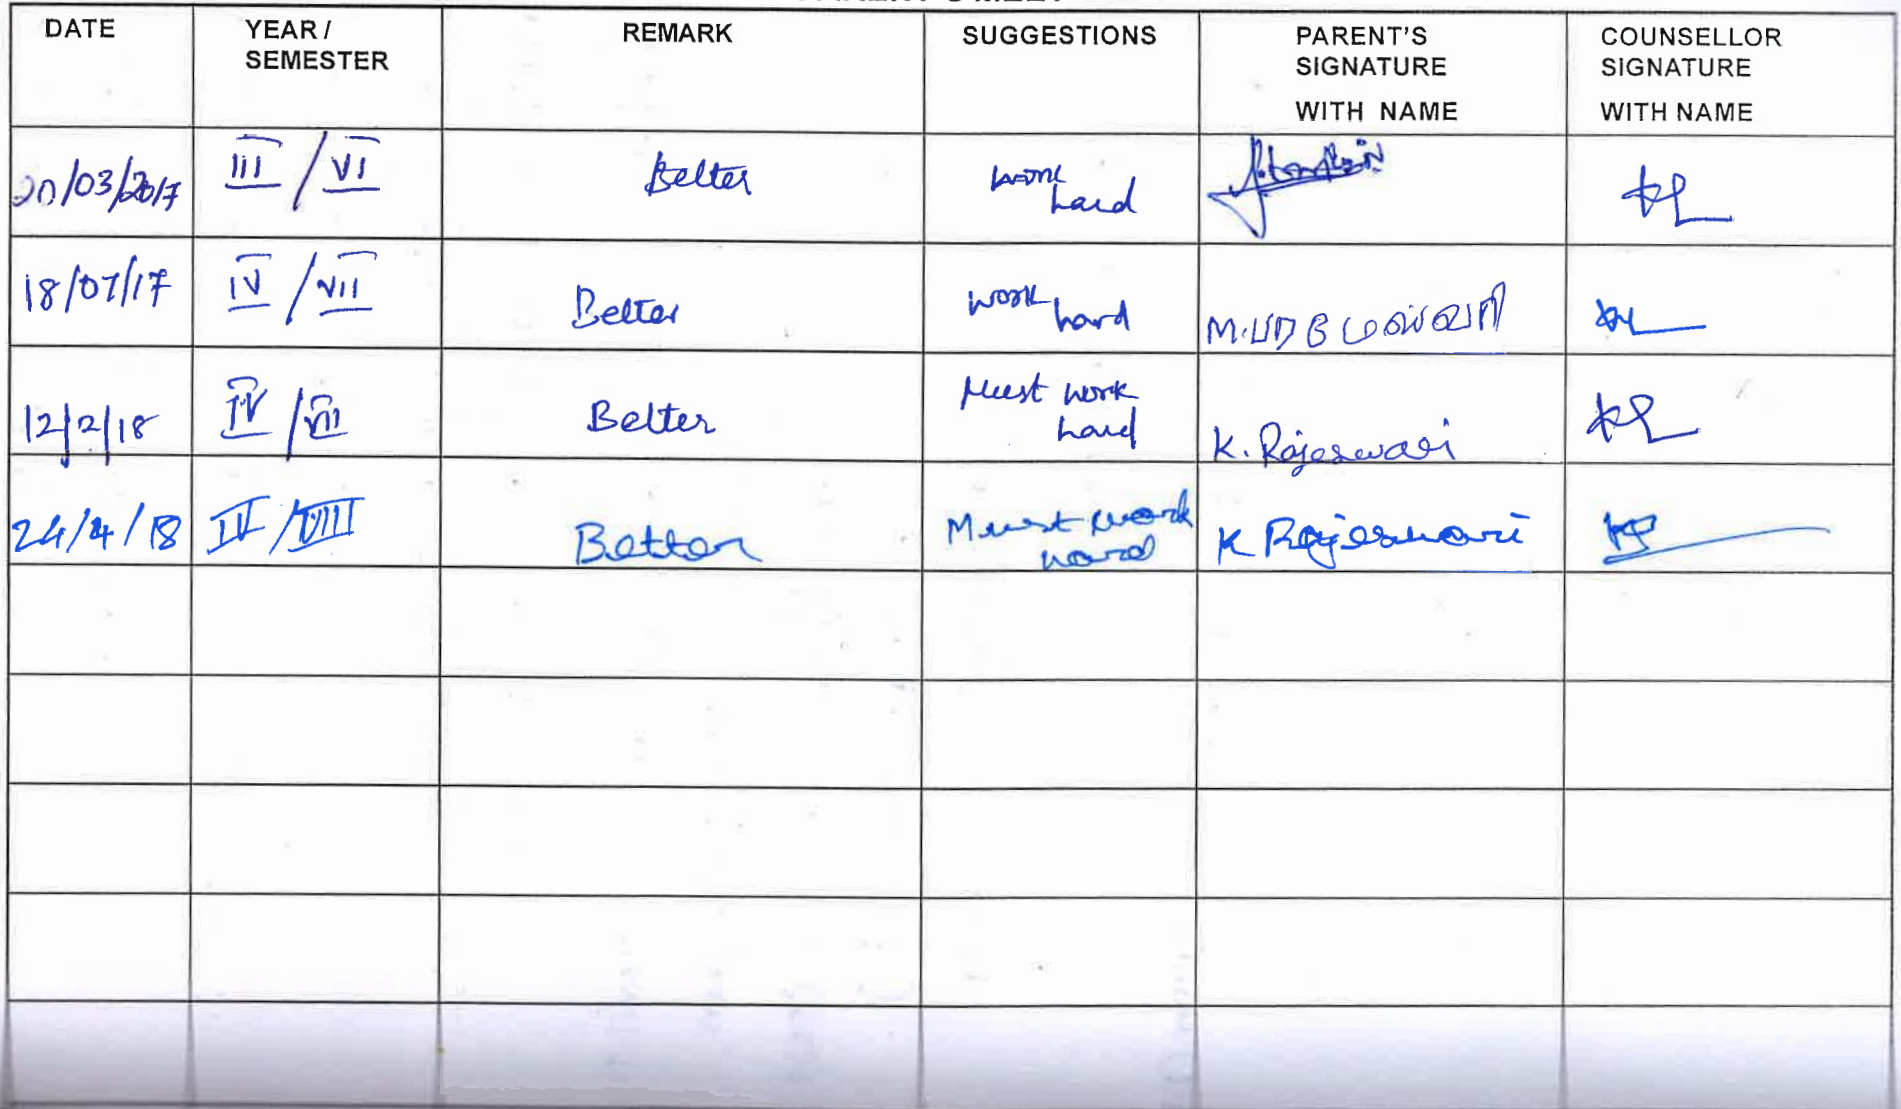 DATE YEAR / SEMESTER REMARK SUGGESTIONS PARENT'S SIGNATURE WITH NAME COUNSELLOR SIGNATURE WITH NAME
20/03/2017 III / VI Better work hard
18/07/17 IV / VII Better work hard
12/2/18 IV / VII Better Must work hard K. Rajeswari
24/4/18 IV / VIII Better Must work hard K Rajeswari